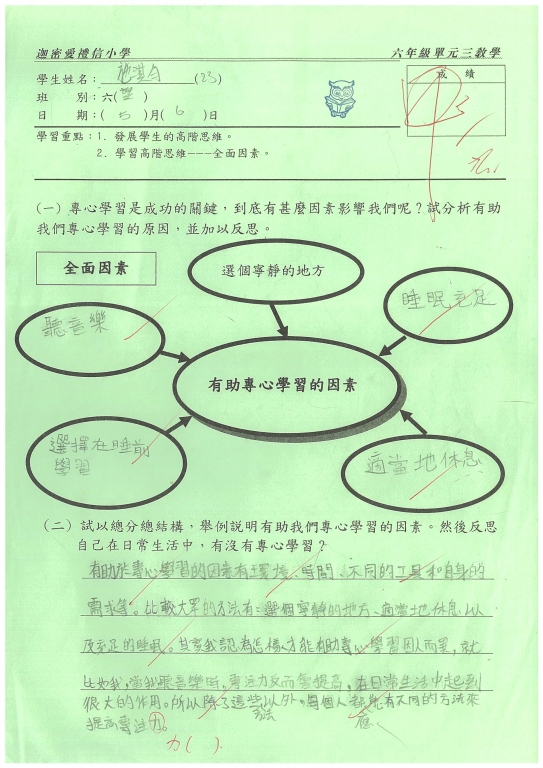 迦密愛禮信小學
六年級單元三教學
學生姓名：(23)
成績
班 別：六( )
日 期：( 5 )月( 6 )日
學習重點：1. 發展學生的高階思維。
2. 學習高階思維---全面因素。
(一) 專心學習是成功的關鍵，到底有甚麼因素影響我們呢？試分析有助
我們專心學習的原因，並加以反思。
全面因素
選個寧靜的地方
聽音樂
睡眠充足
有助專心學習的因素
選擇在睡前
學習
適當地休息
(二) 試以總分總結構，舉例說明有助我們專心學習的因素。然後反思
自己在日常生活中，有沒有專心學習？
有助於專心學習的因素有環境、時間、不同的工具和自身的
需求等。比較大眾的方法有：選個寧靜的地方、適當地休息以
及充足的睡眠。其實我認為怎樣才能有助專心學習因人而異，就
比如我，當我聽音樂時，專注力反而會提高，在日常生活中起到
很大的作用。所以除了這些以外，每個人都能有不同的方法來
方法
應
提高專注力。
力( ).